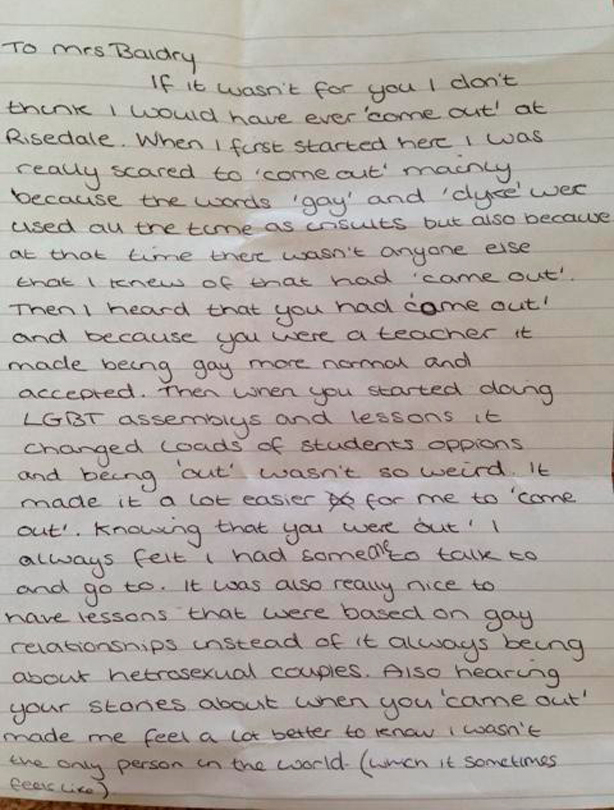 To Mrs Baldry
If it wasn't for you I don't
think I would have ever 'come out' at
Risedale. When I first started here I was
really scared to 'come out' mainly
because the words 'gay' and 'dyke' wer
used all the time as insults but also because
at that time there wasn't anyone else
that I knew of that had 'came out'.
Then I heard that you had come out'
and because you were a teacher it
made being gay more normal and
accepted. Then when you started doing
LGBT assemblys and lessons it
changed loads of students oppions
and being 'out' wasn't so weird. It
made it a lot easier for me to 'come
out'. Knowing that you were out' I
always felt I had someone to talk to
and go to. It was also really nice to
have lessons that were based on gay
relationships instead of it always being
about hetrosexual couples. Also hearing
your stories about when you 'came out'
made me feel a lot better to know I wasn't
the only person in the world. (which it sometimes
feels like)